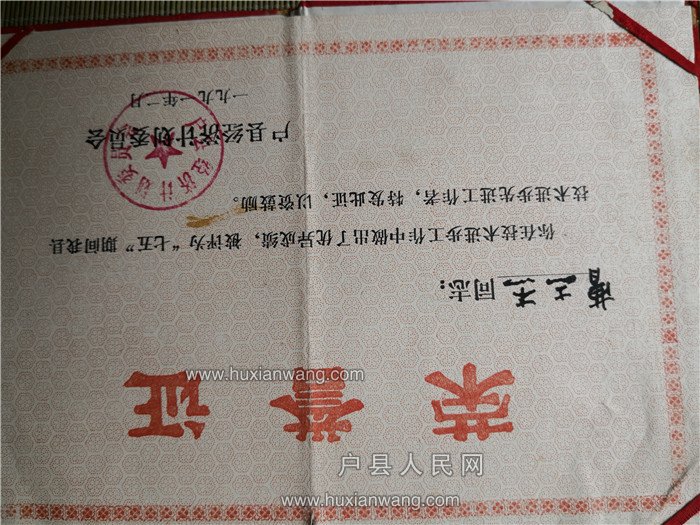 荣誉证
同志：
你在技术进步工作中做出了优异成绩，被评为“七五”期间我县
技术进步先进工作者，特发此证，以资鼓励。
户县经济计划委员会
一九九一年一月
www.huxianwang.com
户县人民网
www.huxianwang.com